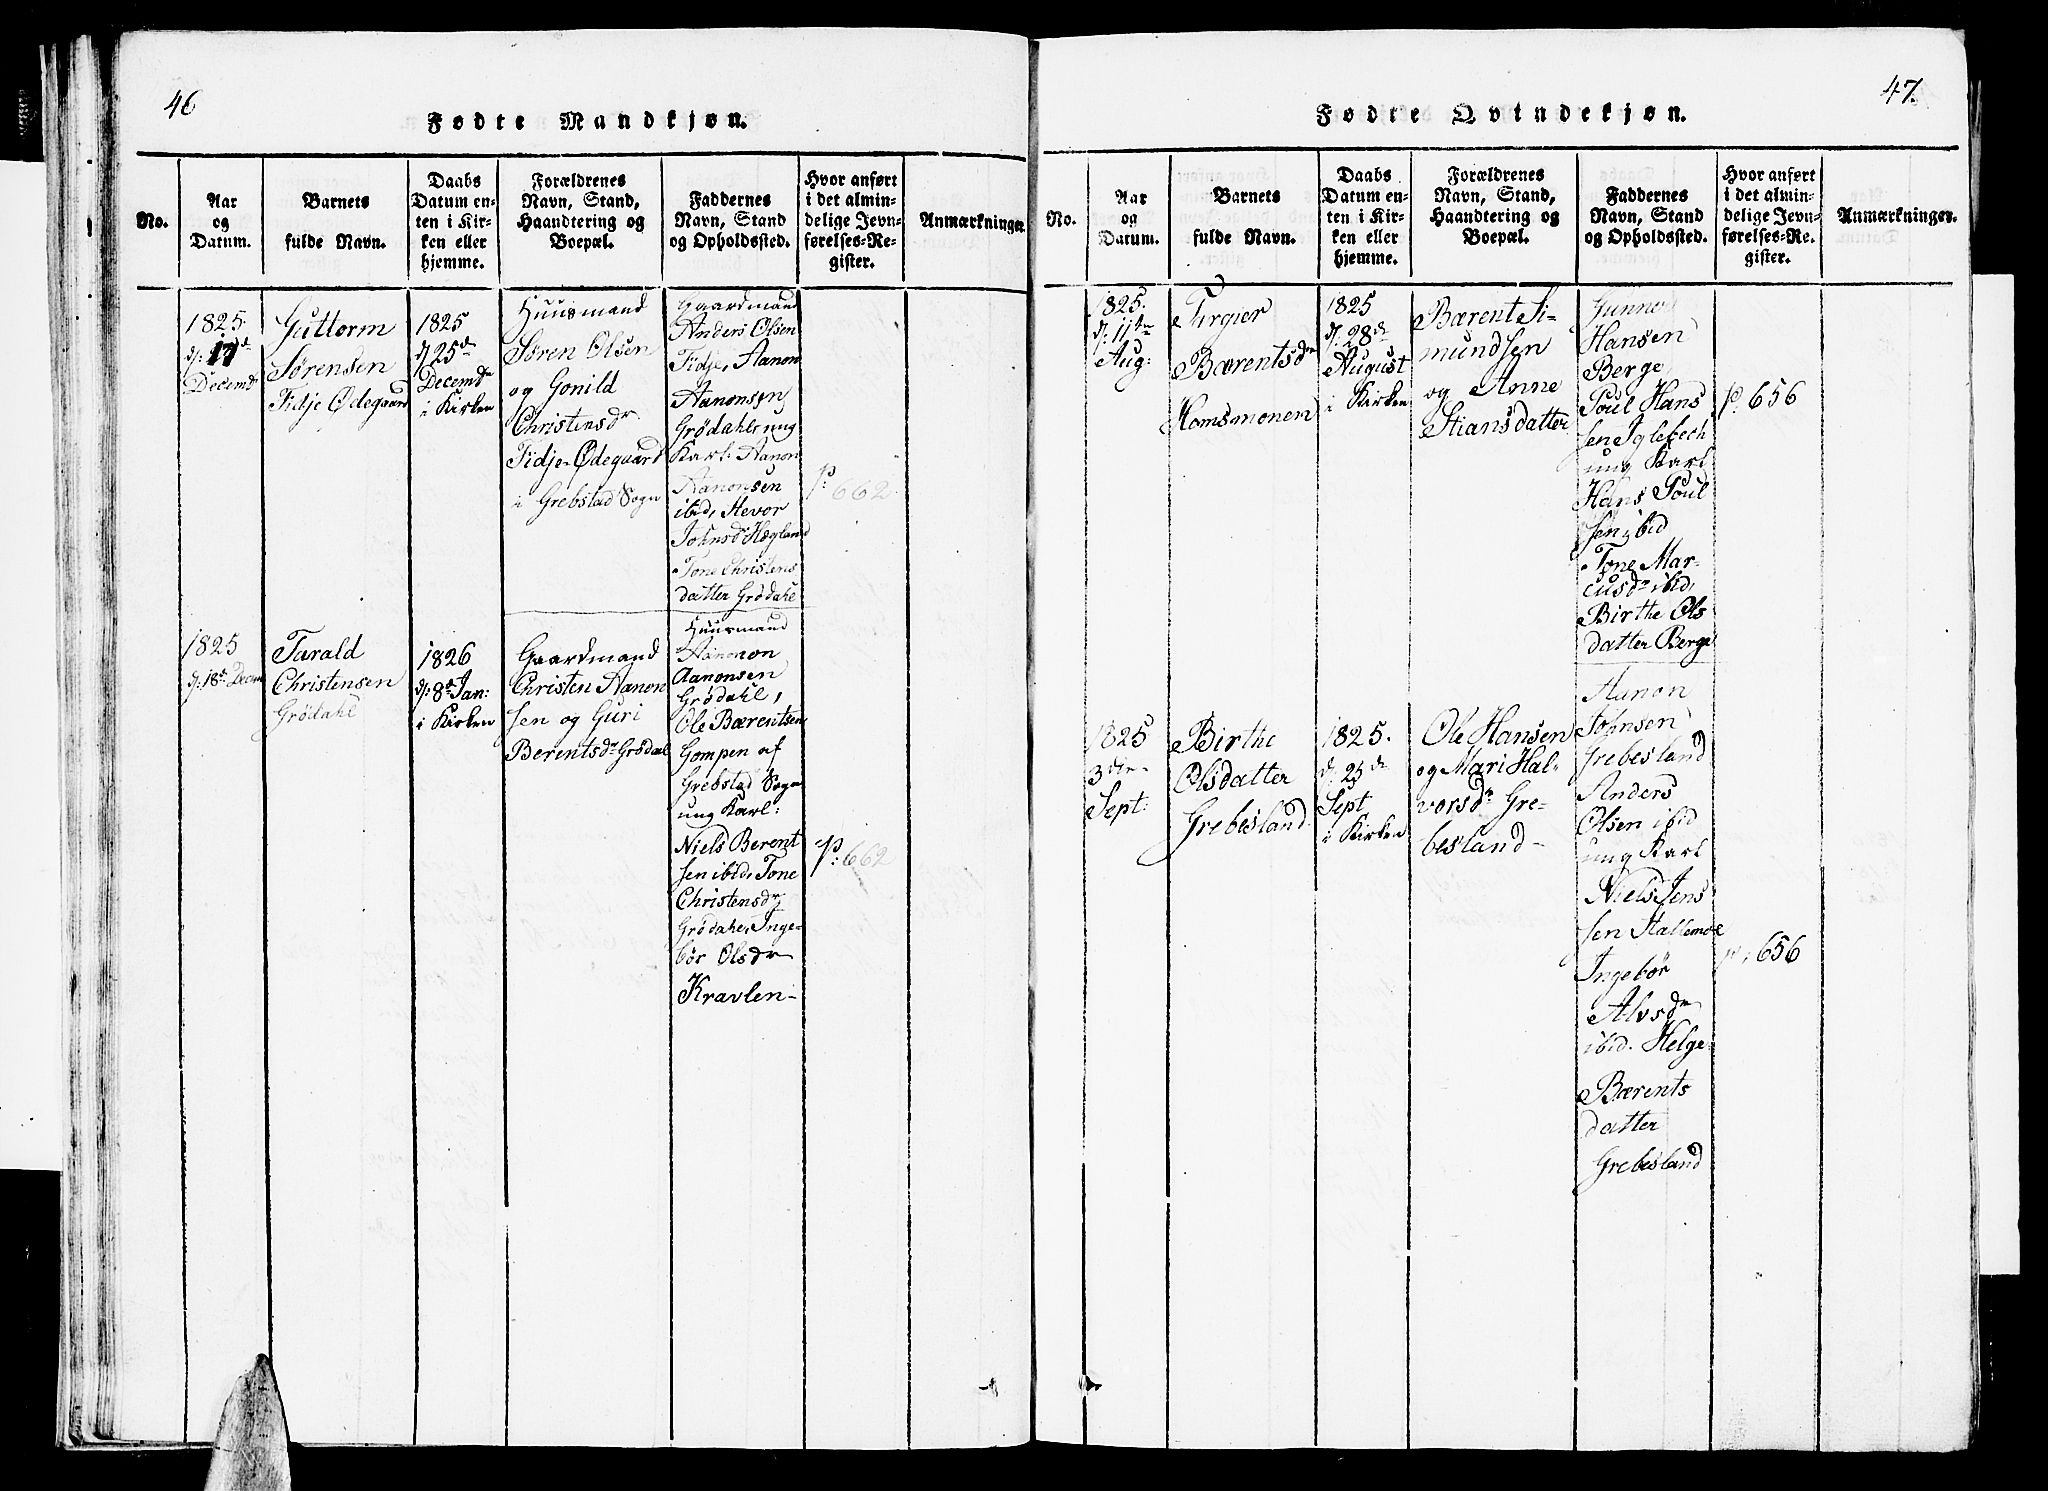 46
Fødte Mandkjøn.
No.
Aar
og
Datum.
Barnets
fulde Navn.
Daabs
Datum en-
ten i Kir-
ken eller
hjemme.
Forældrenes
Navn, Stand,
Haandtering og
Boepæl.
Faddernes
Navn, Stand
og Opholdssted.
Hvor anført
i det almin-
delige Jevn-
førelses-Re-
gister.
Anmærkninger.
1825.
d: 17d
Decembr
Guttorm
Sørensen
Fidje Ødegaard
1825
d 25de
Decembr
i Kirken
Huusmand
Søren Olsen
og Gonild
Christensdr
Fidje-Ødegaard
i Grebstad Sogn
Gaardmand
Anders Olsen
Fidje, Aanon
Aanonsen
Grödahl, ung
Karl: Aanon
Aanonsen
ibid, Hevor
Johnsdr Hægland
Tone Christens
datter Grödahl
p: 662.
1825
d: 18de Decem
Tarald
Christensen
Grödahl
1826
d: 8de Jan:
i Kirken
Gaardmand
Christen Aanon
sen og Guri
Berentsdr Grödal
Huusmand
Aanonon
Aanonsen
Grödahl,
Ole Bærentsen
Gompen af
Grebstad Sogn
ung Karl:
Niels Berent
sen ibid, Tone
Christensdr
Grödahl, Inge-
bör Olsdr
Kravlen-
p: 662
47.
Fødte Qvindekjøn.
No.
Aar
og
Datum.
Barnets
fulde Navn.
Daabs
Datum en-
ten i Kir-
ken eller
hjemme.
Forældrenes
Navn, Stand,
Haandtering og
Boepæl.
Faddernes
Navn, Stand
og Opholdssted.
Hvor anført
i det almin-
delige Jevn-
førelses-Re-
gister.
Anmærkninger.
1825.
d: 11te
Aug:
Turgier
Bærentsdr
Homsmonen
1825
d: 28de
August
i Kirken
Bærent Si-
mundsen
og Anne
Stiansdatter
Gunnor
Hansen
Berge
Poul Hans
sen Iglebech
ung Karl
Hans Poul
sen ibid
Tone Mar-
cusdr ibid,
Birthe Ols
datter Berge
p: 656
1825
3die
Sept:
Birthe
Olsdatter
Grebesland
1825.
d. 25de
Sept
i Kirken
Ole Hansen
og Mari Hal-
vorsdr Gre-
besland-
Aanon
Johnsen
Grebesland
Anders
Olsen ibid
ung Karl
Niels Jens
sen Stallemoe
Ingebör
Alvsdr
ibid. Helge
Bærents
datter
Grebesland
p: 656